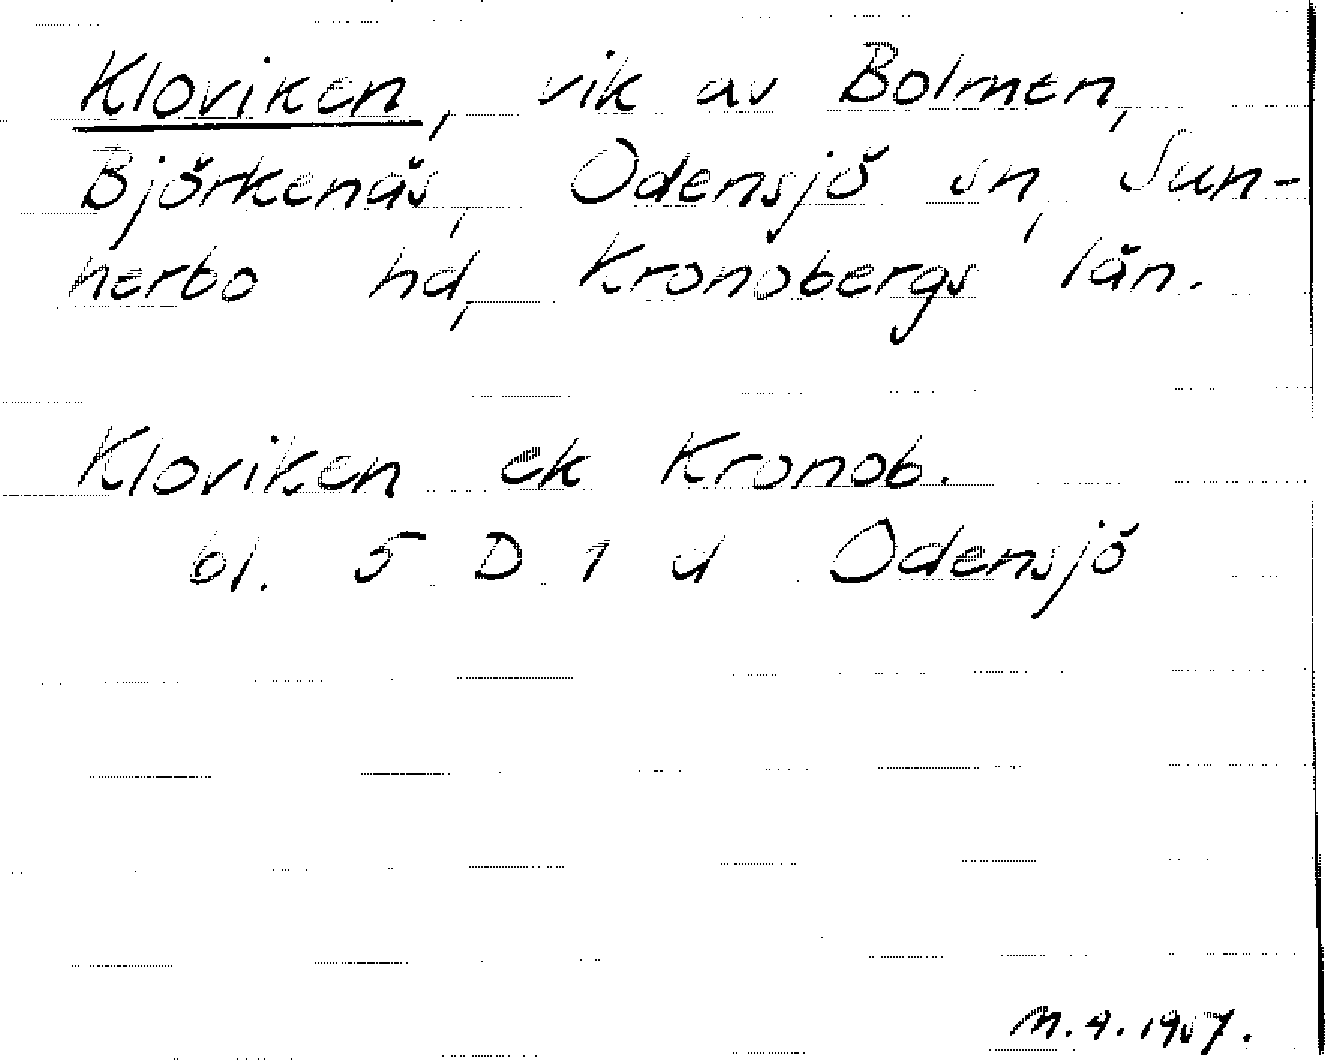 Kloviken, vik av Bolmen,
Björkenäs, Odensjö sn, Sun-
nerbo hd, Kronobergs län.
Kloviken ek Kronob.
bl. 5 D 1 d Odensjö